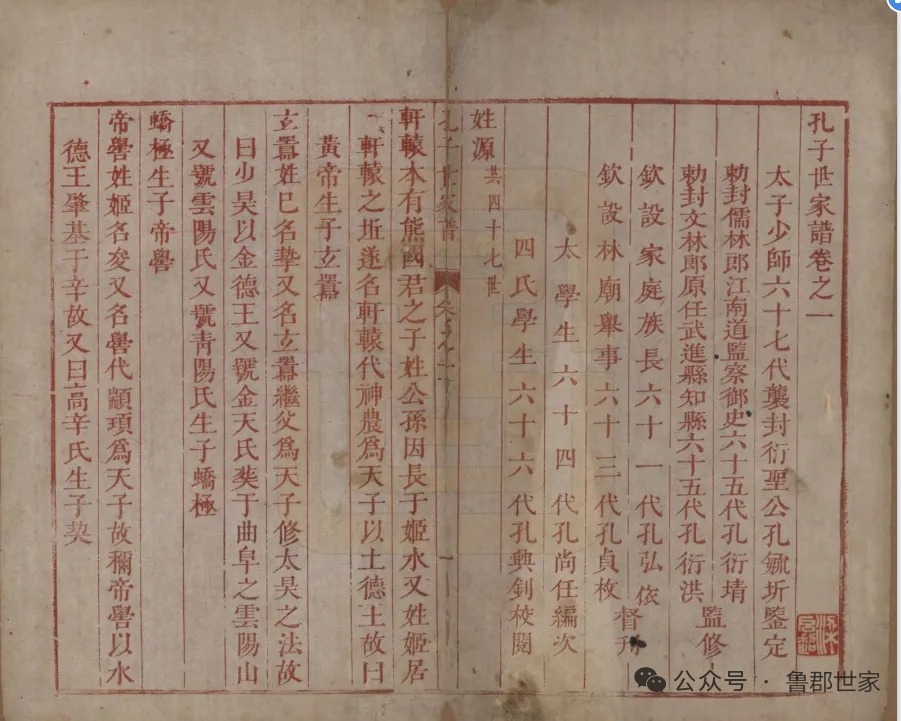 孔子世家譜卷之一
太子少師六十七代襲封衍聖公孔毓圻鑒定
勅封儒林郎江南道監察御史六十五代孔衍堉
勅封文林郎原任武進縣知縣六十五代孔衍洪
監修
欽設家庭族長六十一代孔弘依
欽設林廟舉事六十三代孔貞枚
督刊
太學生六十四代孔尚任編次
四氏學生六十六代孔興釗校閱
姓源共四十七世
孔子世家譜
卷之一
一
軒轅本有熊國君之子姓公孫因長于姬水又姓姬居
軒轅之坵遂名軒轅代神農為天子以土德王故曰
黃帝生子玄囂
玄囂姓已名摯又名玄囂繼父為天子修太昊之法故
曰少昊以金德王又號金天氏葬于曲阜之雲陽山
又號雲陽氏又號青陽氏生子蟜極
蟜極生子帝嚳
帝嚳姓姬名夋又名嚳代顓頊為天子故稱帝嚳以水
德王肇基于辛故又曰高辛氏生子契
公众号 · 鲁郡世家